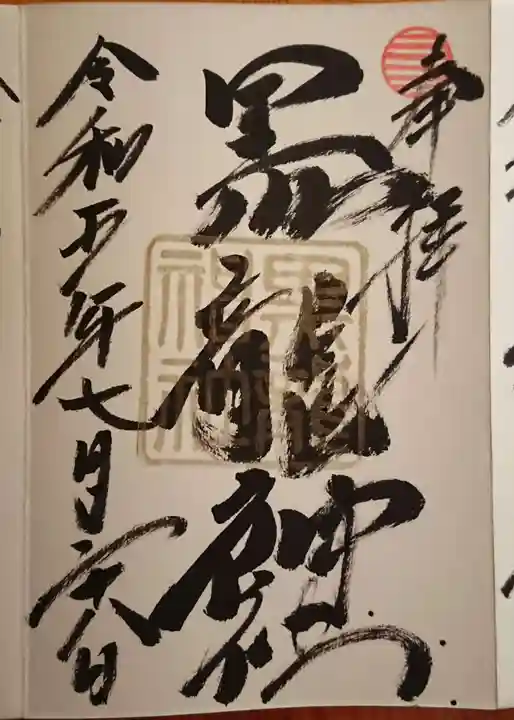 奉拝
黒龍神社
黒龍神社
令和五年七月二十八日